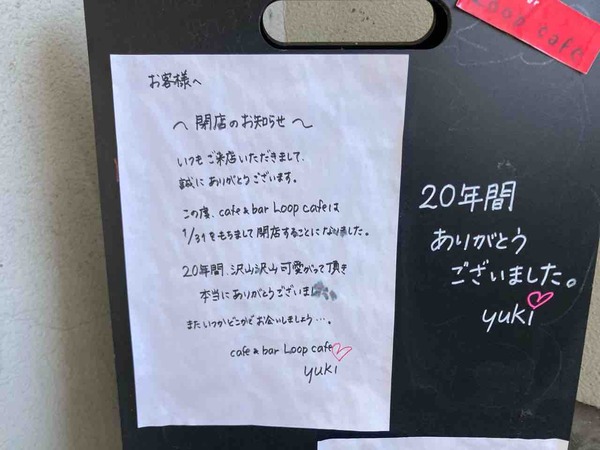 お客様へ
〜 閉店のお知らせ 〜
いつもご来店いただきまして、
誠にありがとうございます。
この度、cafe & bar Loop cafeは
1/31をもちまして閉店することになりました。
20年間、沢山沢山可愛がって頂き
本当にありがとうございま
またいつかどこかでお会いしましょう…。
cafe & bar Loop cafe
yuki
Loop cafe
20年間
ありがとう
ございました。
yuki